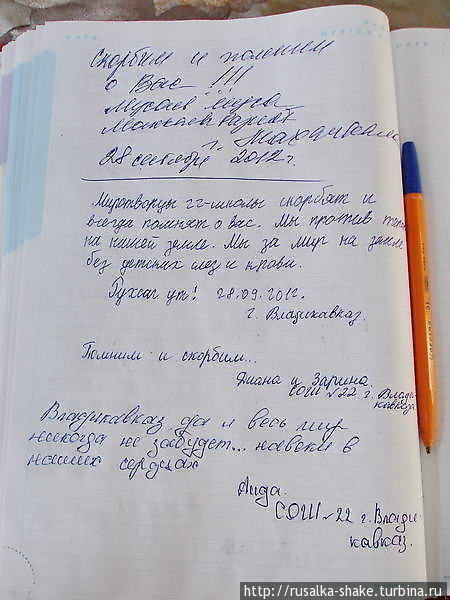 DATE
Скорбим и помним
о Вас !!!
Мусаев Муса
г. Махачкала
28 сентября 2012г.
Миротворцы гг-школы скорбят и
всегда помнят о вас. Мы против
на нашей земле. Мы за мир на земле
без детских слез и крови.
Рухсаг ут! 28.09.2012.
г. Владикавказ.
Помним и скорбим...
Диана и Зарина.
СОШ №22 г. Влади
кавказа
Владикавказ да и весь мир
никогда не забудет... навеки в
наших сердцах
Аида.
СОШ №22 г. Влади-
кавказ.
http://rusalka-shake.турбина.ru